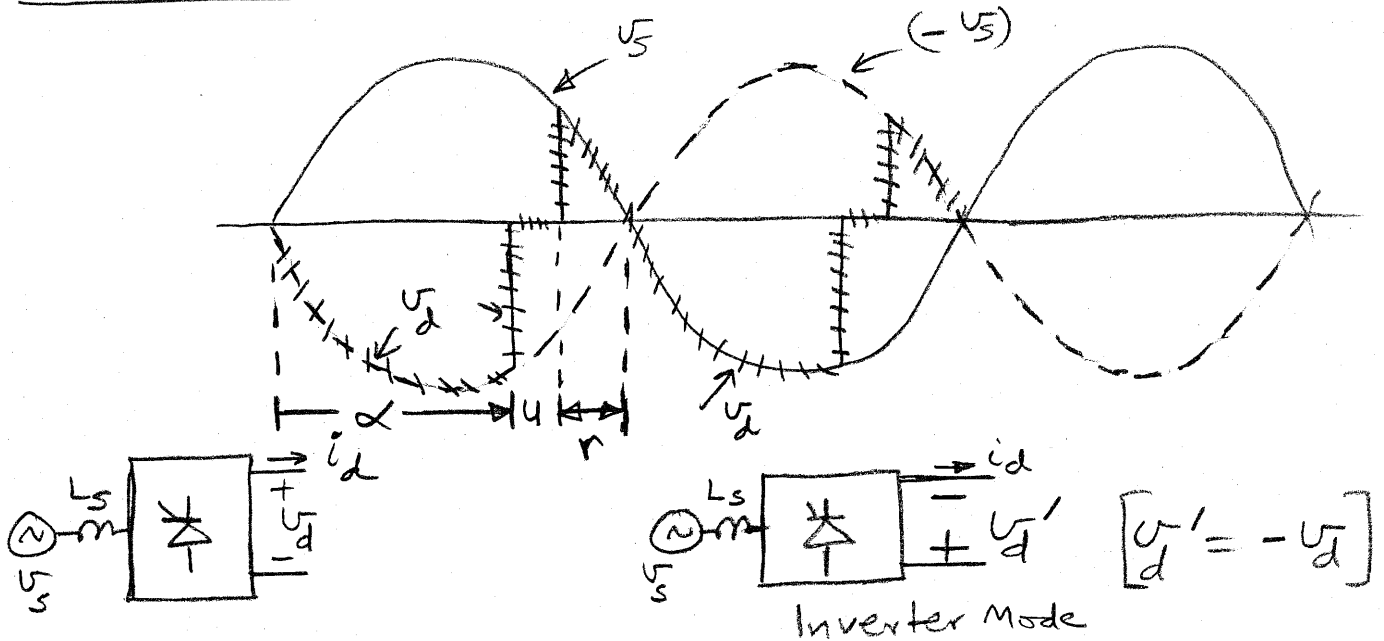 v_s
(- v_s)
v_d
α
u
r
v_d
i_d
L_s
+
v_d
-
v_s
i_d
L_s
-
v_d'
+
v_s
[v_d' = - v_d]
Inverter Mode